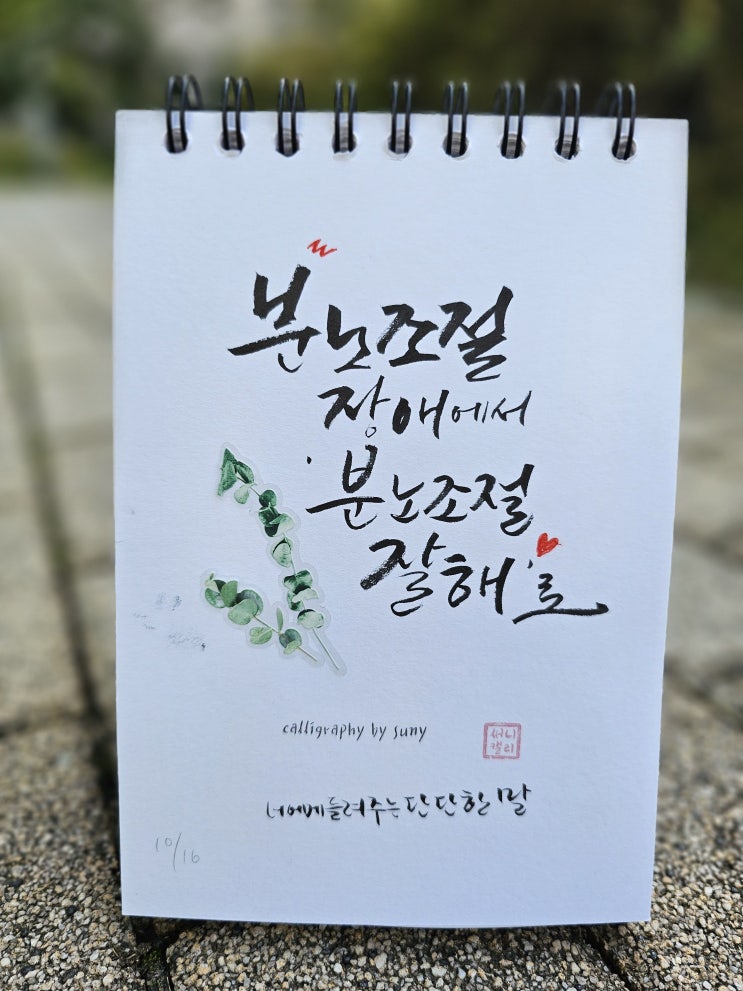 분노조절
장애에서
'분노조절
잘해'로
calligraphy by suny
써니
캘리
너에게 들려주는 단단한 말
10/16